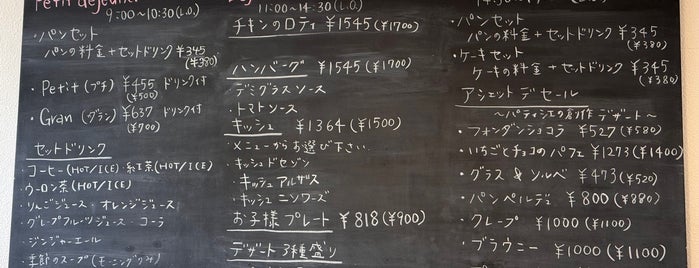 Petit déjeuner
9:00〜10:30(L.O.)
・パンセット
パンの料金+セットドリンク ¥345
(¥380)
・Petit(プチ) ¥455 ドリンク付
(¥500)
・Gran(グラン) ¥637 ドリンク付
(¥700)
セットドリンク
・コーヒー(HOT/ICE)・紅茶(HOT/ICE)
・ウーロン茶(HOT/ICE)
・りんごジュース・オレンジジュース
・グレープフルーツジュース・コーラ
・ジンジャーエール
・季節のスープ(モーニングのみ)
11:00〜14:30(L.O.)
チキンのロティ ¥1545(¥1700)
ハンバーグ ¥1545(¥1700)
・デミグラスソース
・トマトソース
キッシュ ¥1364(¥1500)
・メニューからお選び下さい
・キッシュドセゾン
・キッシュアルザス
・キッシュニソワーズ
お子様プレート ¥818(¥900)
デザート3種盛り
・パンセット
パンの料金+セットドリンク ¥345
(¥380)
・ケーキセット
ケーキの料金+セットドリンク ¥345
(¥380)
アシェットデセール
〜パティシエの創作デザート〜
・フォンダンショコラ ¥527(¥580)
・いちごとチョコのパフェ ¥1273(¥1400)
・グラス&ソルベ ¥473(¥520)
・パンペルデュ ¥800(¥880)
・クレープ ¥1000(¥1100)
・ブラウニー ¥1000(¥1100)